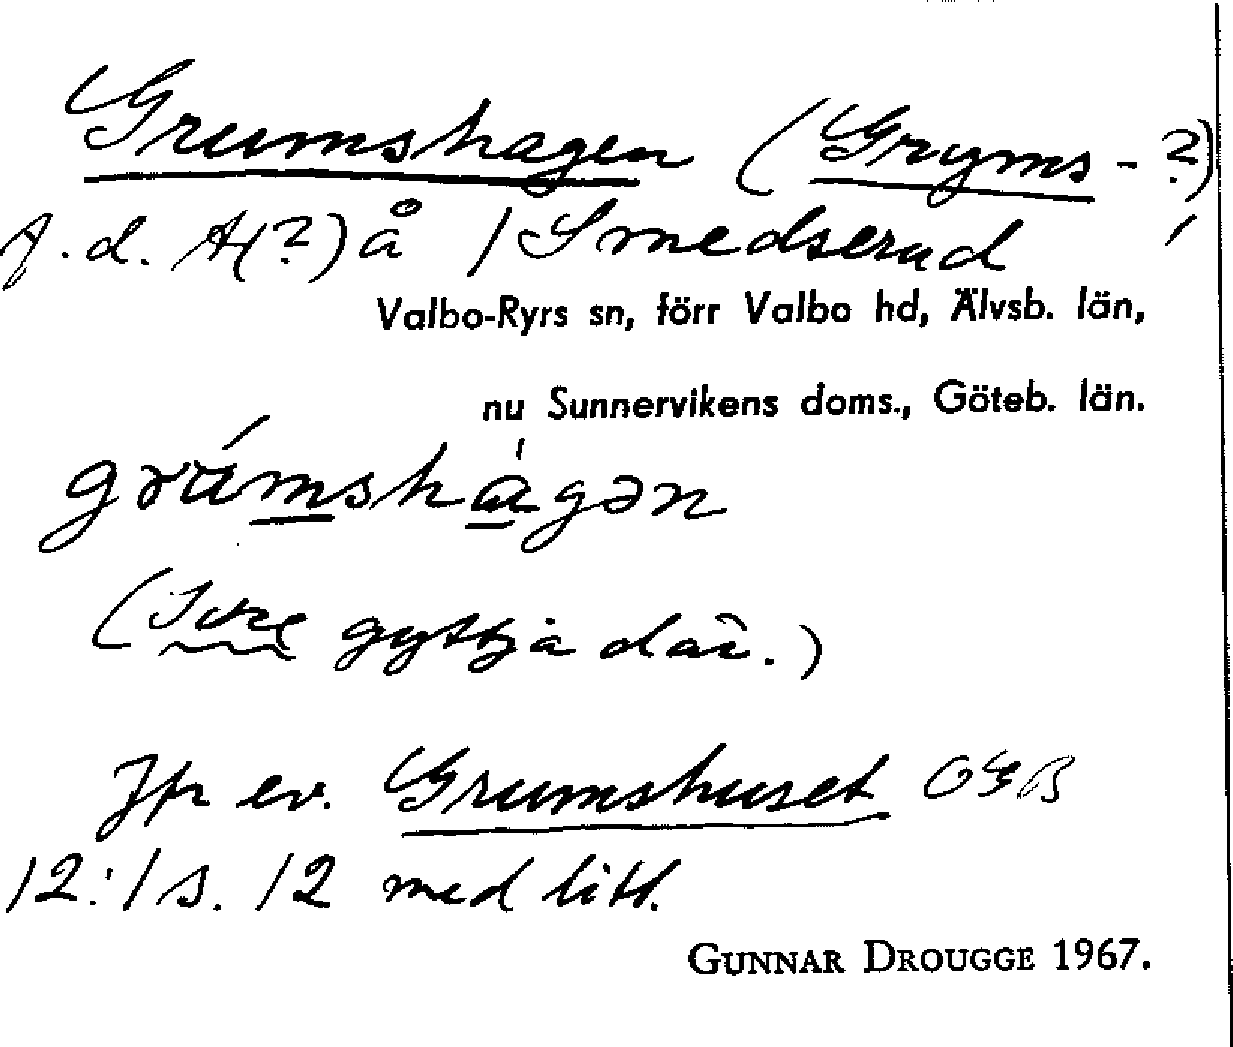 Grumshagen (Gryms-?),
f.d. A(?)å 1 Smedserud
Valbo-Ryrs sn, förr Valbo hd, Älvsb. län,
nu Sunnervikens doms., Göteb. län.
(Icke gyttja där.)
Jfr ev. Grumshuset OGB
12:1 s. 12 med litt.
GUNNAR DROUGGE 1967.